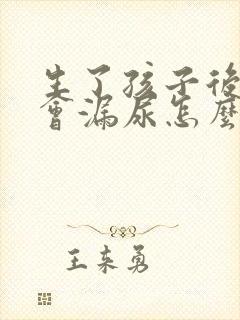 生了孩子後
會漏尿怎麼
王來勇